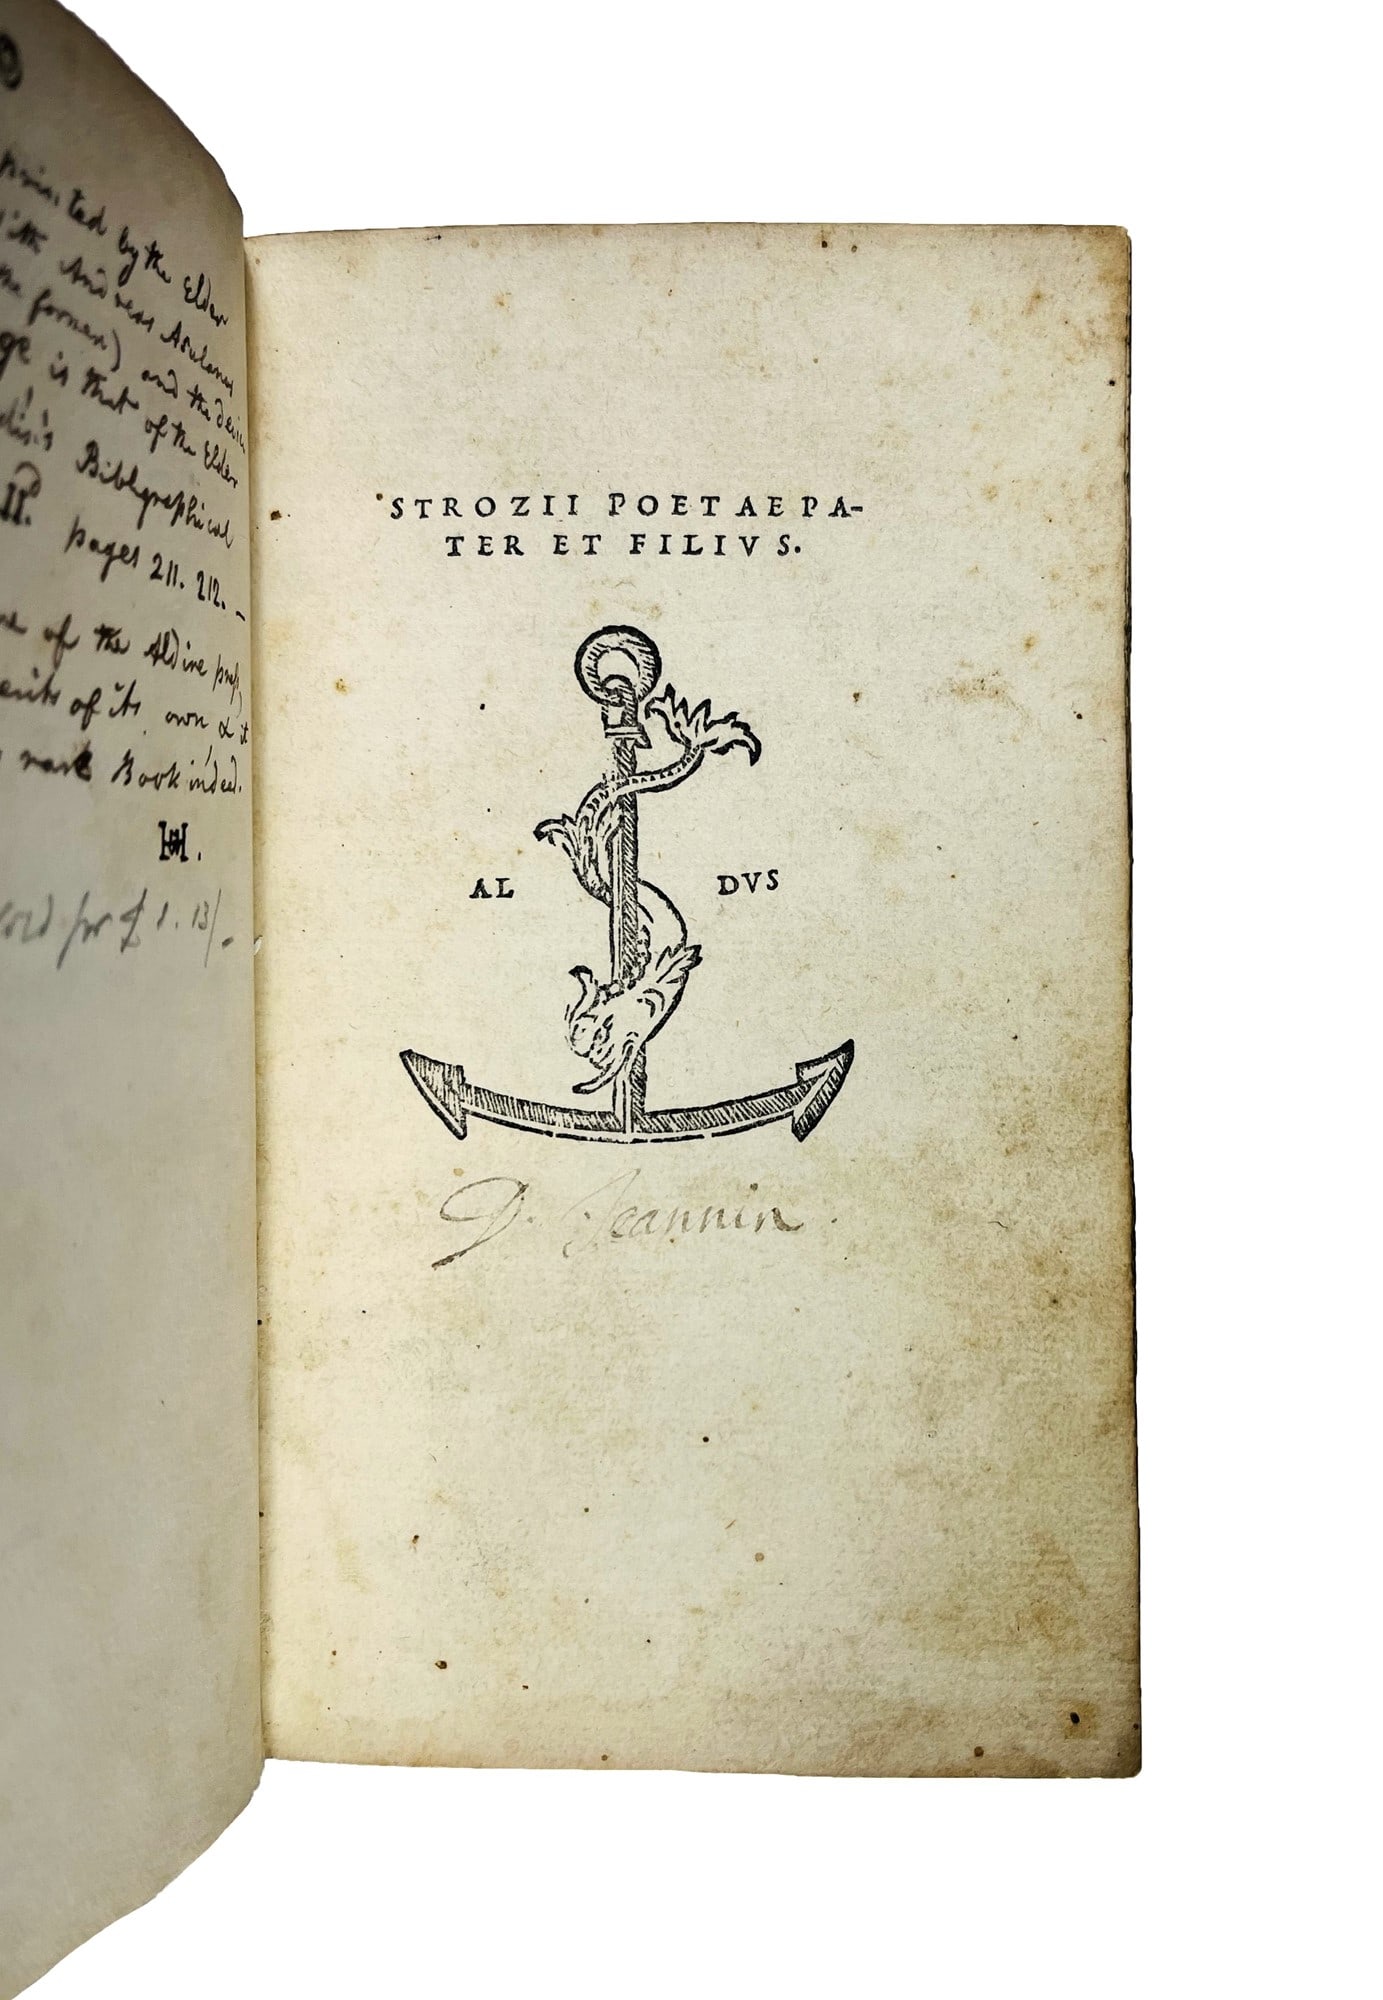 printed by the Elder
with Andreas Asulanus
the former) and the devise
ge is that of the Elder
Bibligraphical
II. pages 211. 212. -
of the Aldine press,
of its own & it
rare Book indeed.
for £ 1. 13/-
STROZII POETAE PA-
TER ET FILIVS.
AL DVS
D. Jeannin.